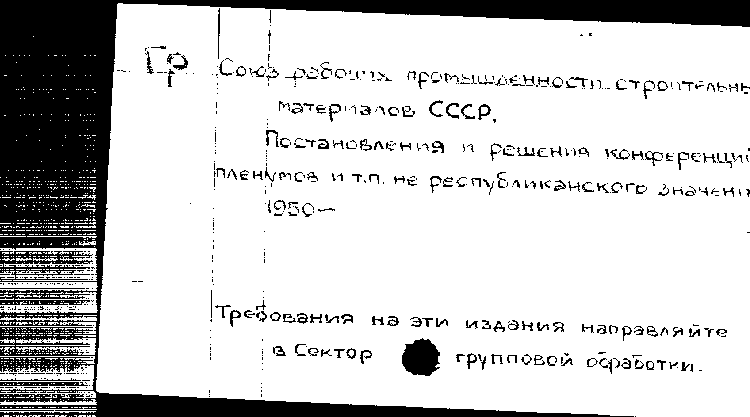 Гр
Союз рабочих промышленности строительны
материалов СССР.
Постановления и решения конференций
пленумов и т.п. не республиканского значени
1950—
Требования на эти издания направляйте
в Сектор групповой обработки.